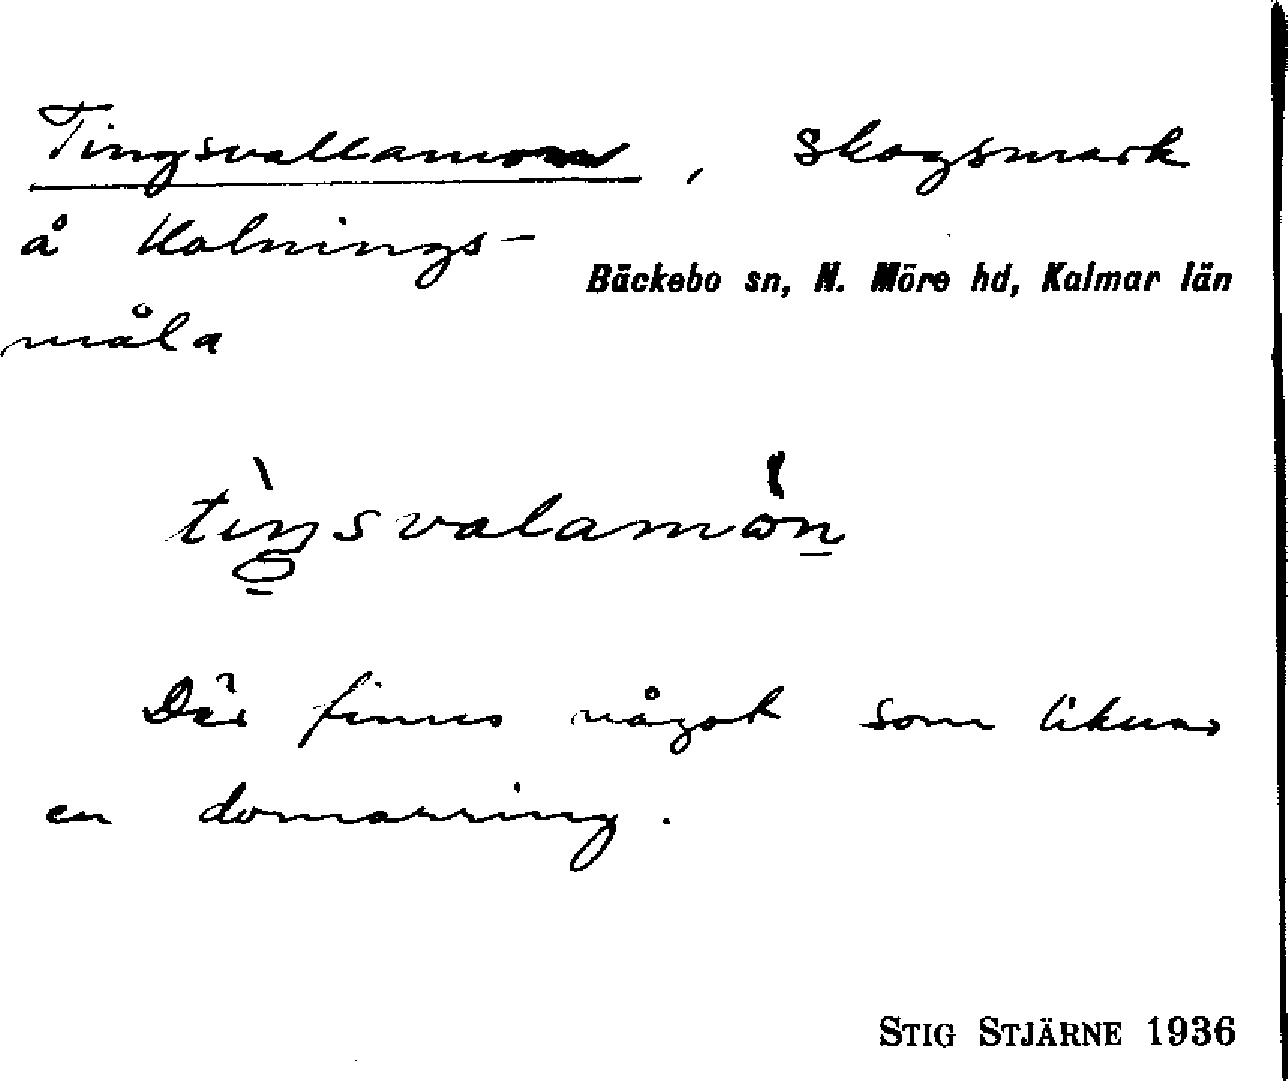 Tingsvallamon, Skogsmark
å Kolnings-
Bäckebo sn, N. Möre hd, Kalmar län
måla
tiŋsvalamòn
Där finns något som liknar
en domarring.
STIG STJÄRNE 1936